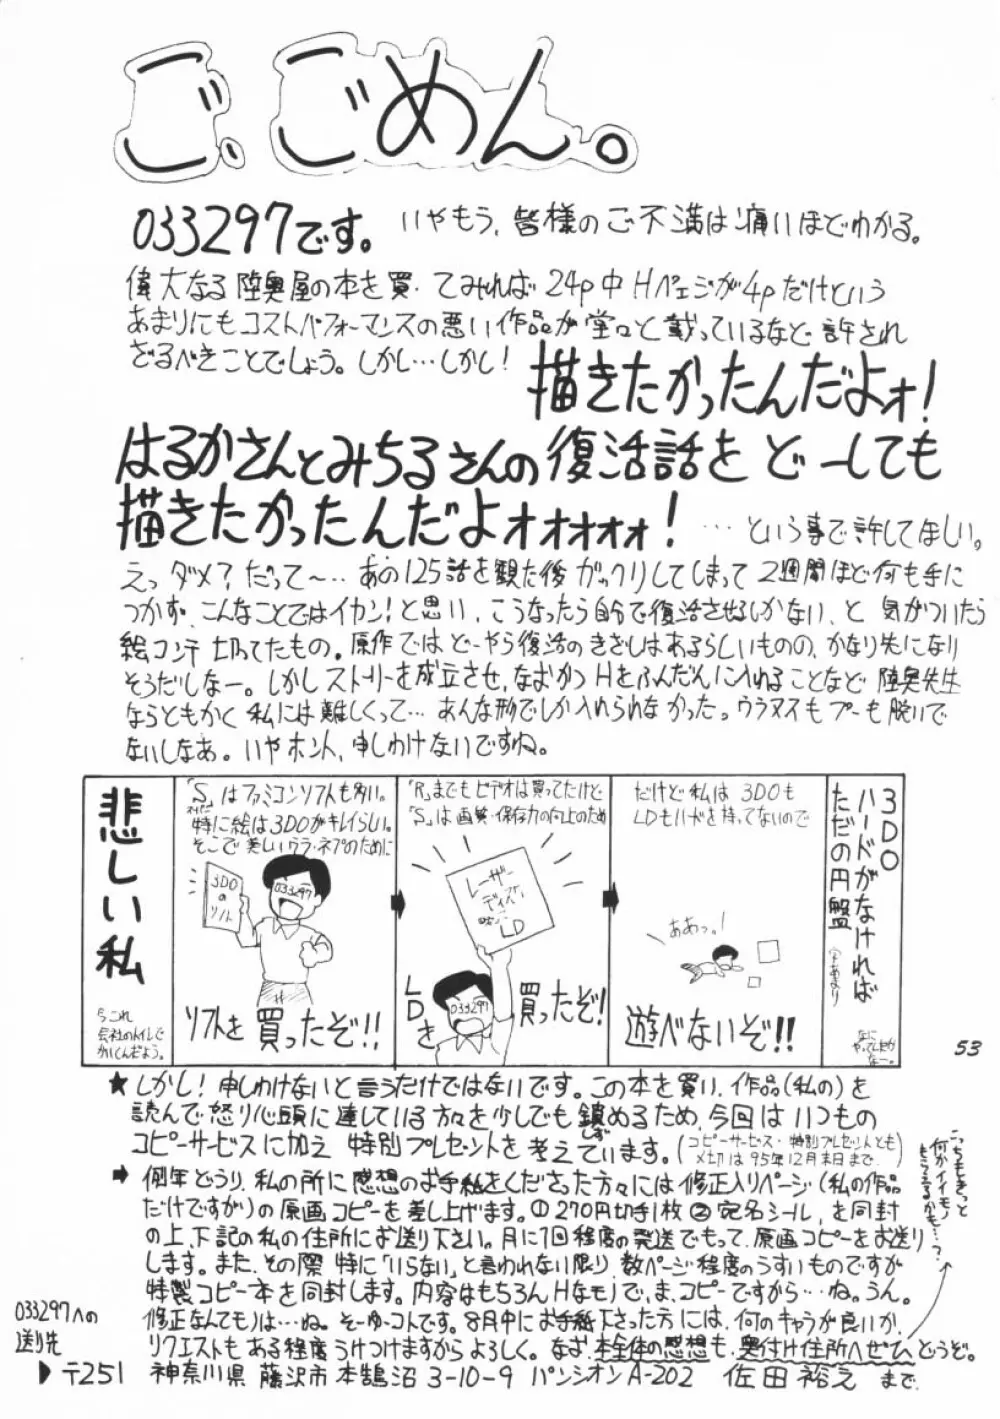 ご、ごめん。
033297です。いやもう、皆様のご不満は痛いほどわかる。
偉大なる陸奥屋の本を買ってみれば24p中Hページが4pだけという
あまりにもコストパフォーマンスの悪い作品が堂々と載っているなど許され
ざるべきことでしょう。しかし…しかし!
描きたかったんだよォ!
はるかさんとみちるさんの復活話をどーしても
描きたかったんだよォォォォォ!…という事で許してほしい。
えっダメ?だって〜…あの125話を観た後ガックリしてしまって2週間ほど何も手に
つかず、こんなことではイカン!と思い、こうなったら自分で復活させるしかない、と気がついたら
絵コンテ切ってたもの。原作ではどーやら復活のきざしはあるらしいものの、かなり先になり
そうだしなー。しかしストーリーを成立させ、なおかつHをふんだんに入れることなど陸奥先生
ならともかく私には難しくって…あんな形でしか入れられなかった。ウラヌスもプーも脱いで
ないしなあ。いやホント、申しわけないですね。
悲しい私
今これ
会社のトイレで
かいてんだよう。
「S」はファミコンソフトも多い。
特に絵は3DOがキレイらしい。
そこで美しいウラ・ネプのために
3DO
の
ソフト
033297
ソフトを買ったぞ!!
「R」までもビデオは買ってたけど
「S」は画質・保存力の向上のため
レーザー
ディスク
LD
033297
LDを買ったぞ!
だけど私は3DOも
LDもハードを持ってないので
ああっ。!
遊べないぞ!!
3DO
ハードがなければ
ただの円盤
(字あまり)
なに
やってんだか
なー。
53
★しかし!申しわけないと言うだけではないです。この本を買い、作品(私の)を
読んで怒り心頭に達している方々を少しでも鎮めるため、今回はいつもの
しず
コピーサービスに加え特別プレゼントを考えています。(コピーサービス・特別プレゼントとも
〆切は95年12月末日まで)
→例年どうり、私の所に感想のお手紙をくださった方々には修正入りページ(私の作品
だけですが)の原画コピーを差し上げます。①270円切手1枚②宛名シール、を同封
の上、下記の私の住所にお送り下さい。月に1回程度の発送でもって、原画コピーをお送り
します。また、その際特に「いらない」と言われない限り、数ページ程度のうすいものですが
特製コピー本を同封します。内容はもちろんHなモノで、ま、コピーですから…ね。うん。
修正なんてものは…ね。そーゆーコトです。8月中にお手紙下さった方には、何のキャラが良いか、
リクエストもある程度うけつけますからよろしく。なお、本全体の感想も、奥付け住所へぜひどうぞ。
こっちもきっと
何かイイモノ
もらえるかも…?
033297への
送り先
▶〒251 神奈川県藤沢市本鵠沼3-10-9 パンシオンA-202 佐田裕え まで